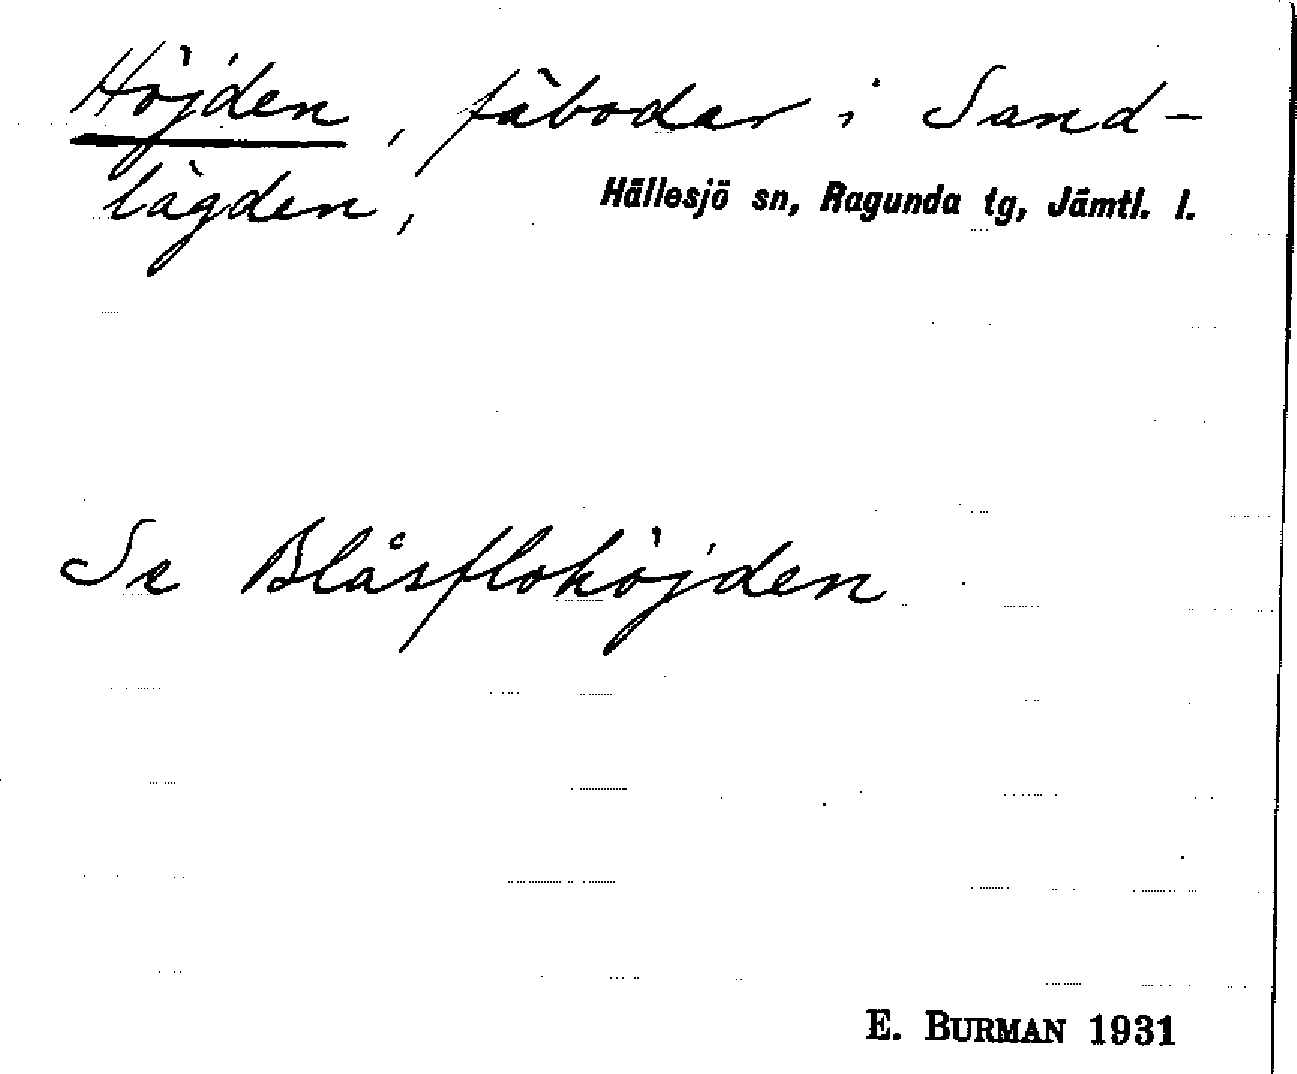 Höjden, fäbodar i Sand-
lägden, Hällesjö sn, Ragunda tg, Jämtl. l.
Se Blåsflohöjden
E. BURMAN 1931